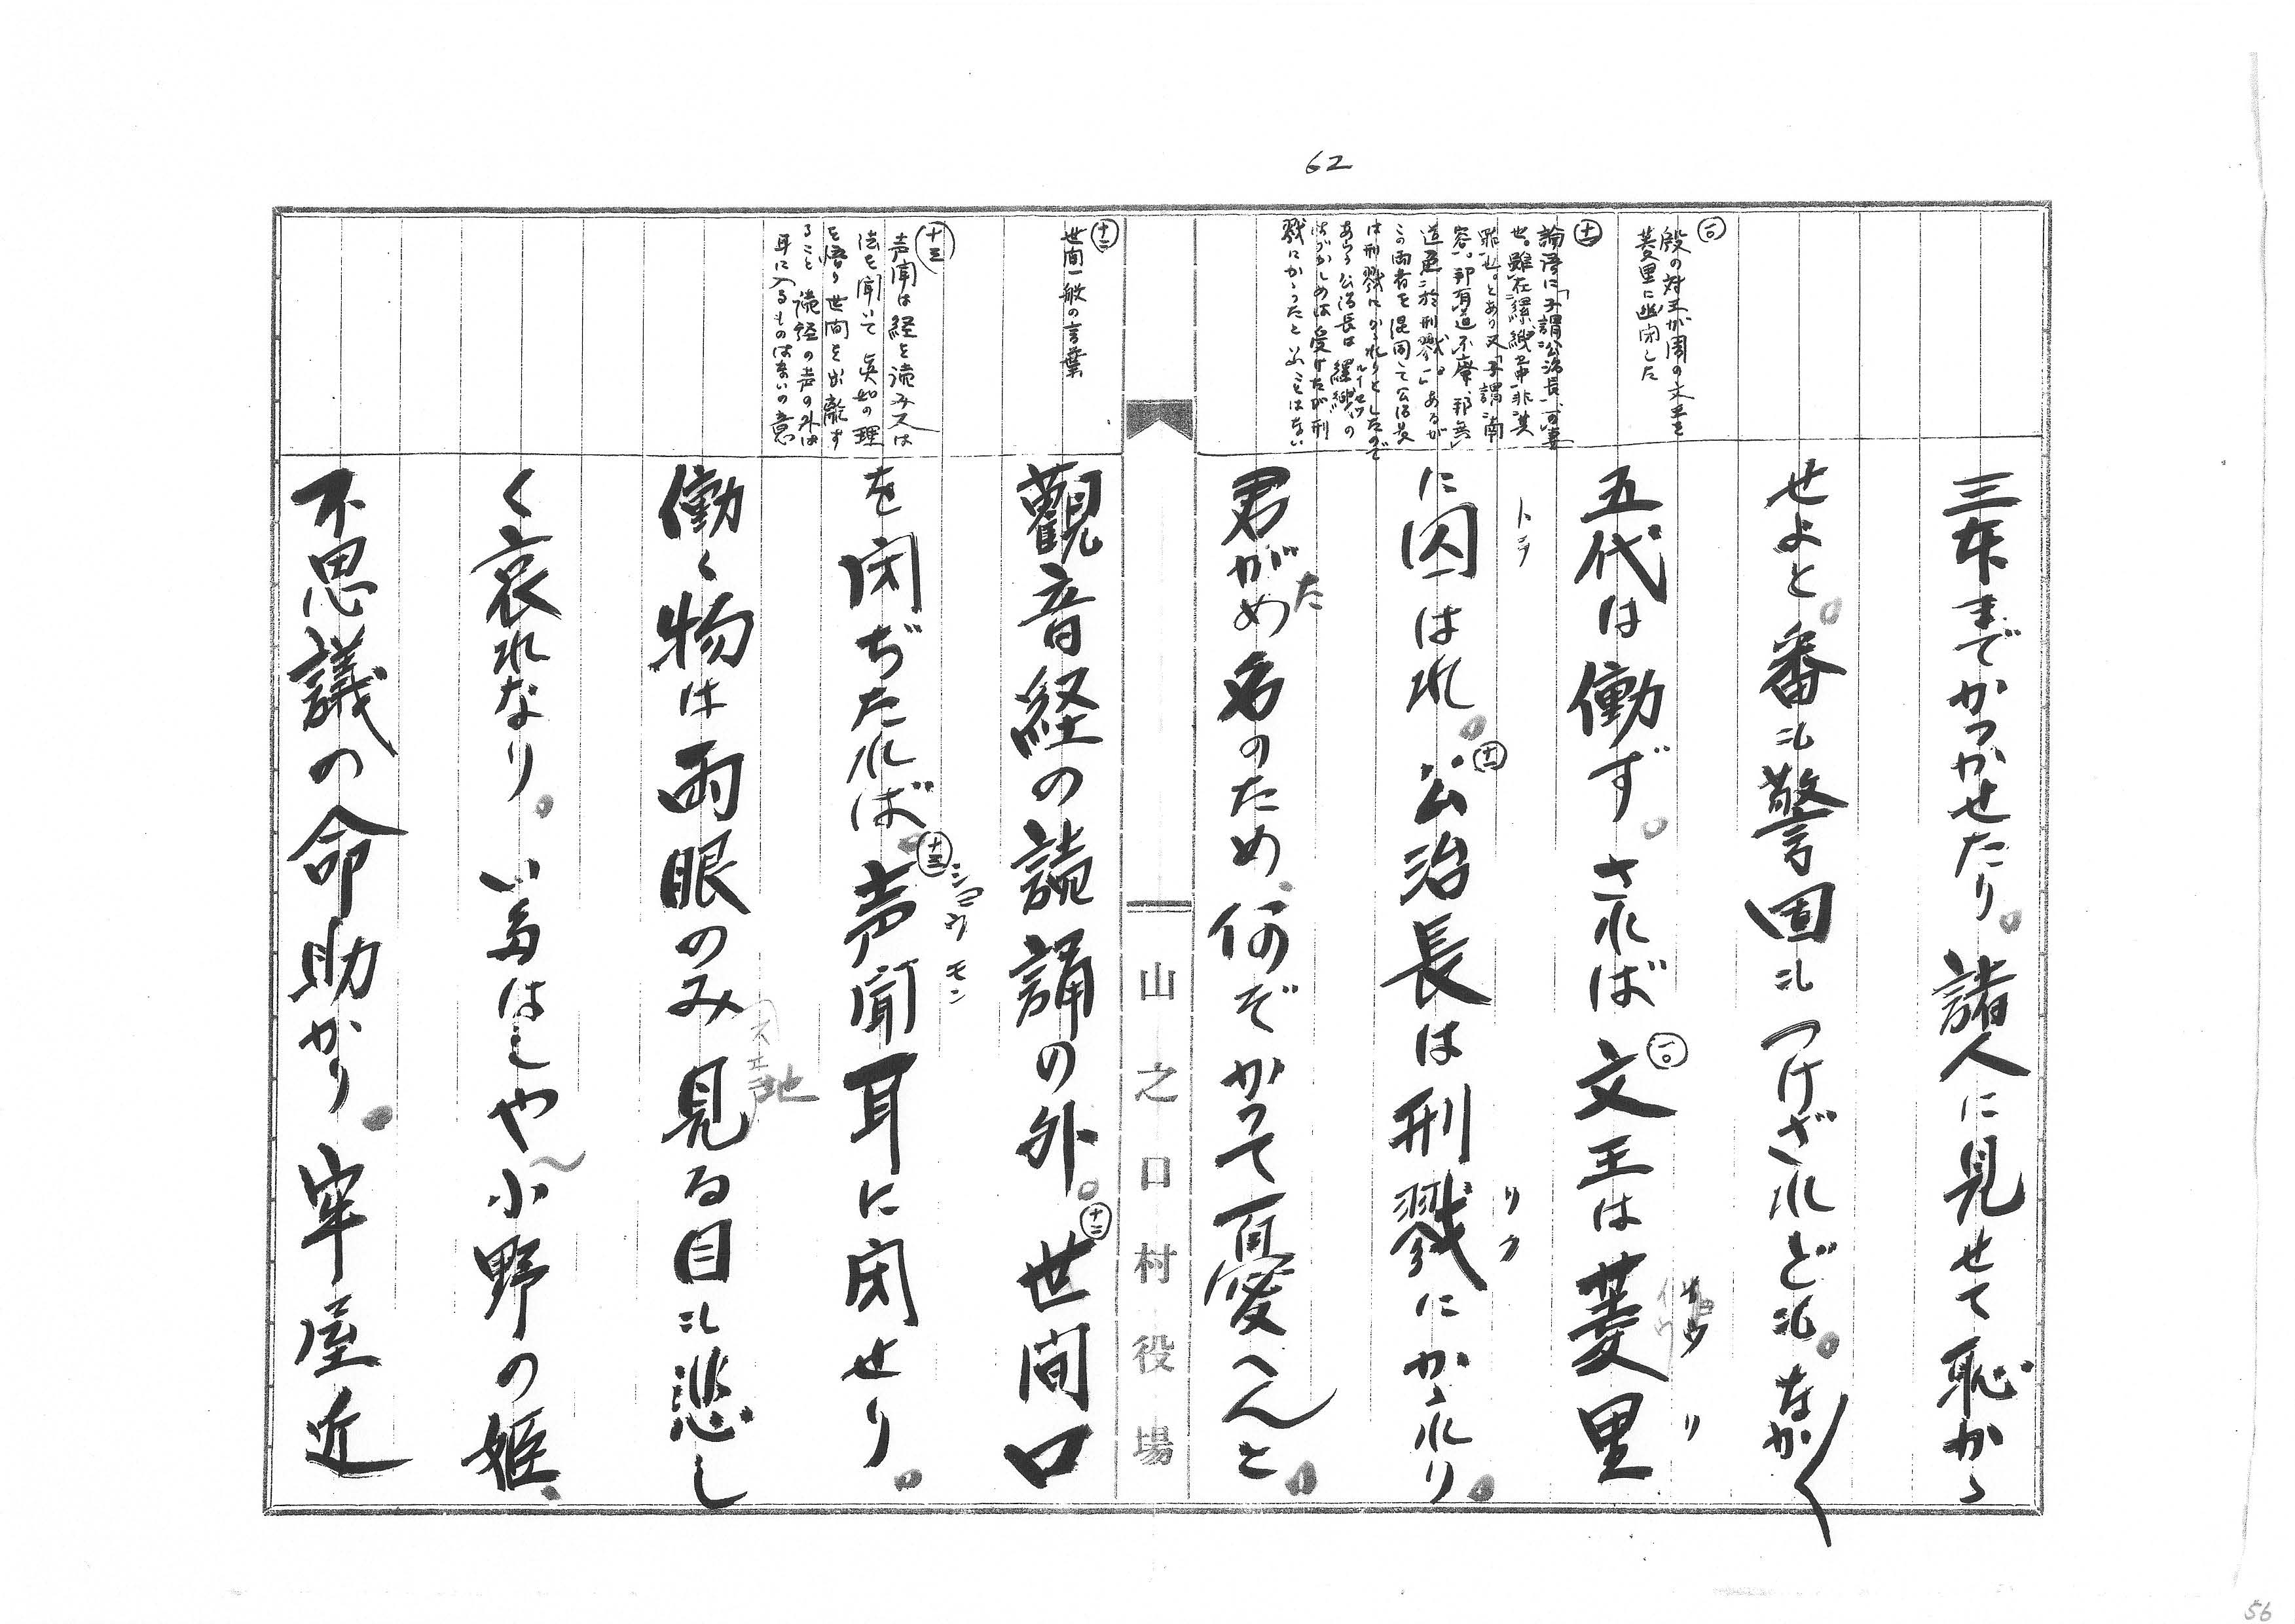 62
㊉
殷の対王が周の文王を
菱里に幽閉した
㊉一
論語に「子謂公治長、可妻
也。雖在縲絏之中、非其
罪也。とあり又「子謂南
容。邦有道不廃、邦無
道免於刑戮。」あるが
この両者を混同して公治長
は刑戮にかゝれりとしたので
あらう公治長は縲絏の
はづかしめは受けたが刑
戮にかゝったと云ことはない
ルイセツ
三年までかつかせたり。諸人に見せて恥かゝ
せよと。番も警固もつけざれども。なか〱
五代は働ず。されば文王は菱里
リ
に囚はれ。公治長は刑戮にかゝれり
トラ
リク
君がため名のため、何ぞかつて憂へんと。
山之口村役場
十二
世間一般の言葉
十三
声聞は経を読み又は
法を聞いて真如の理
を悟り世間を出離す
ること 読経の声の外は
耳に入るものはないの意
觀音経の読誦の外。世間口
を閉ぢたれば。声聞耳に閉せり。
ショウモン
働く物は両眼のみ見る目も悲し
く哀れなり。いたはしや小野の姫、
不思議の命助かり。牢屋近
56